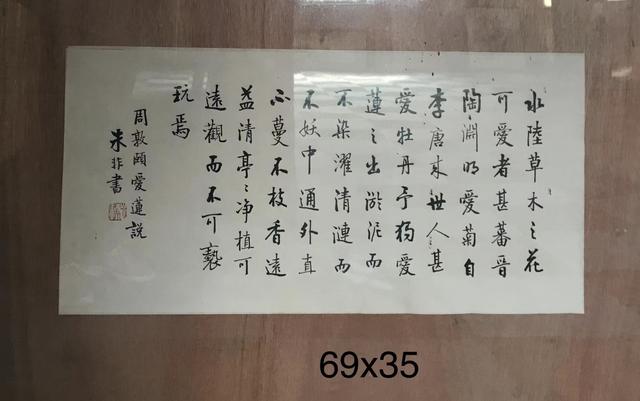 水陸草木之花
可愛者甚蕃晋
陶淵明愛菊自
李唐来世人甚
愛牡丹予獨愛
蓮之出淤泥而
不染濯清漣而
不妖中通外直
不蔓不枝香遠
益清亭〻净植可
遠觀而不可褻
玩焉
周敦頤愛蓮説
朱非書
69x35